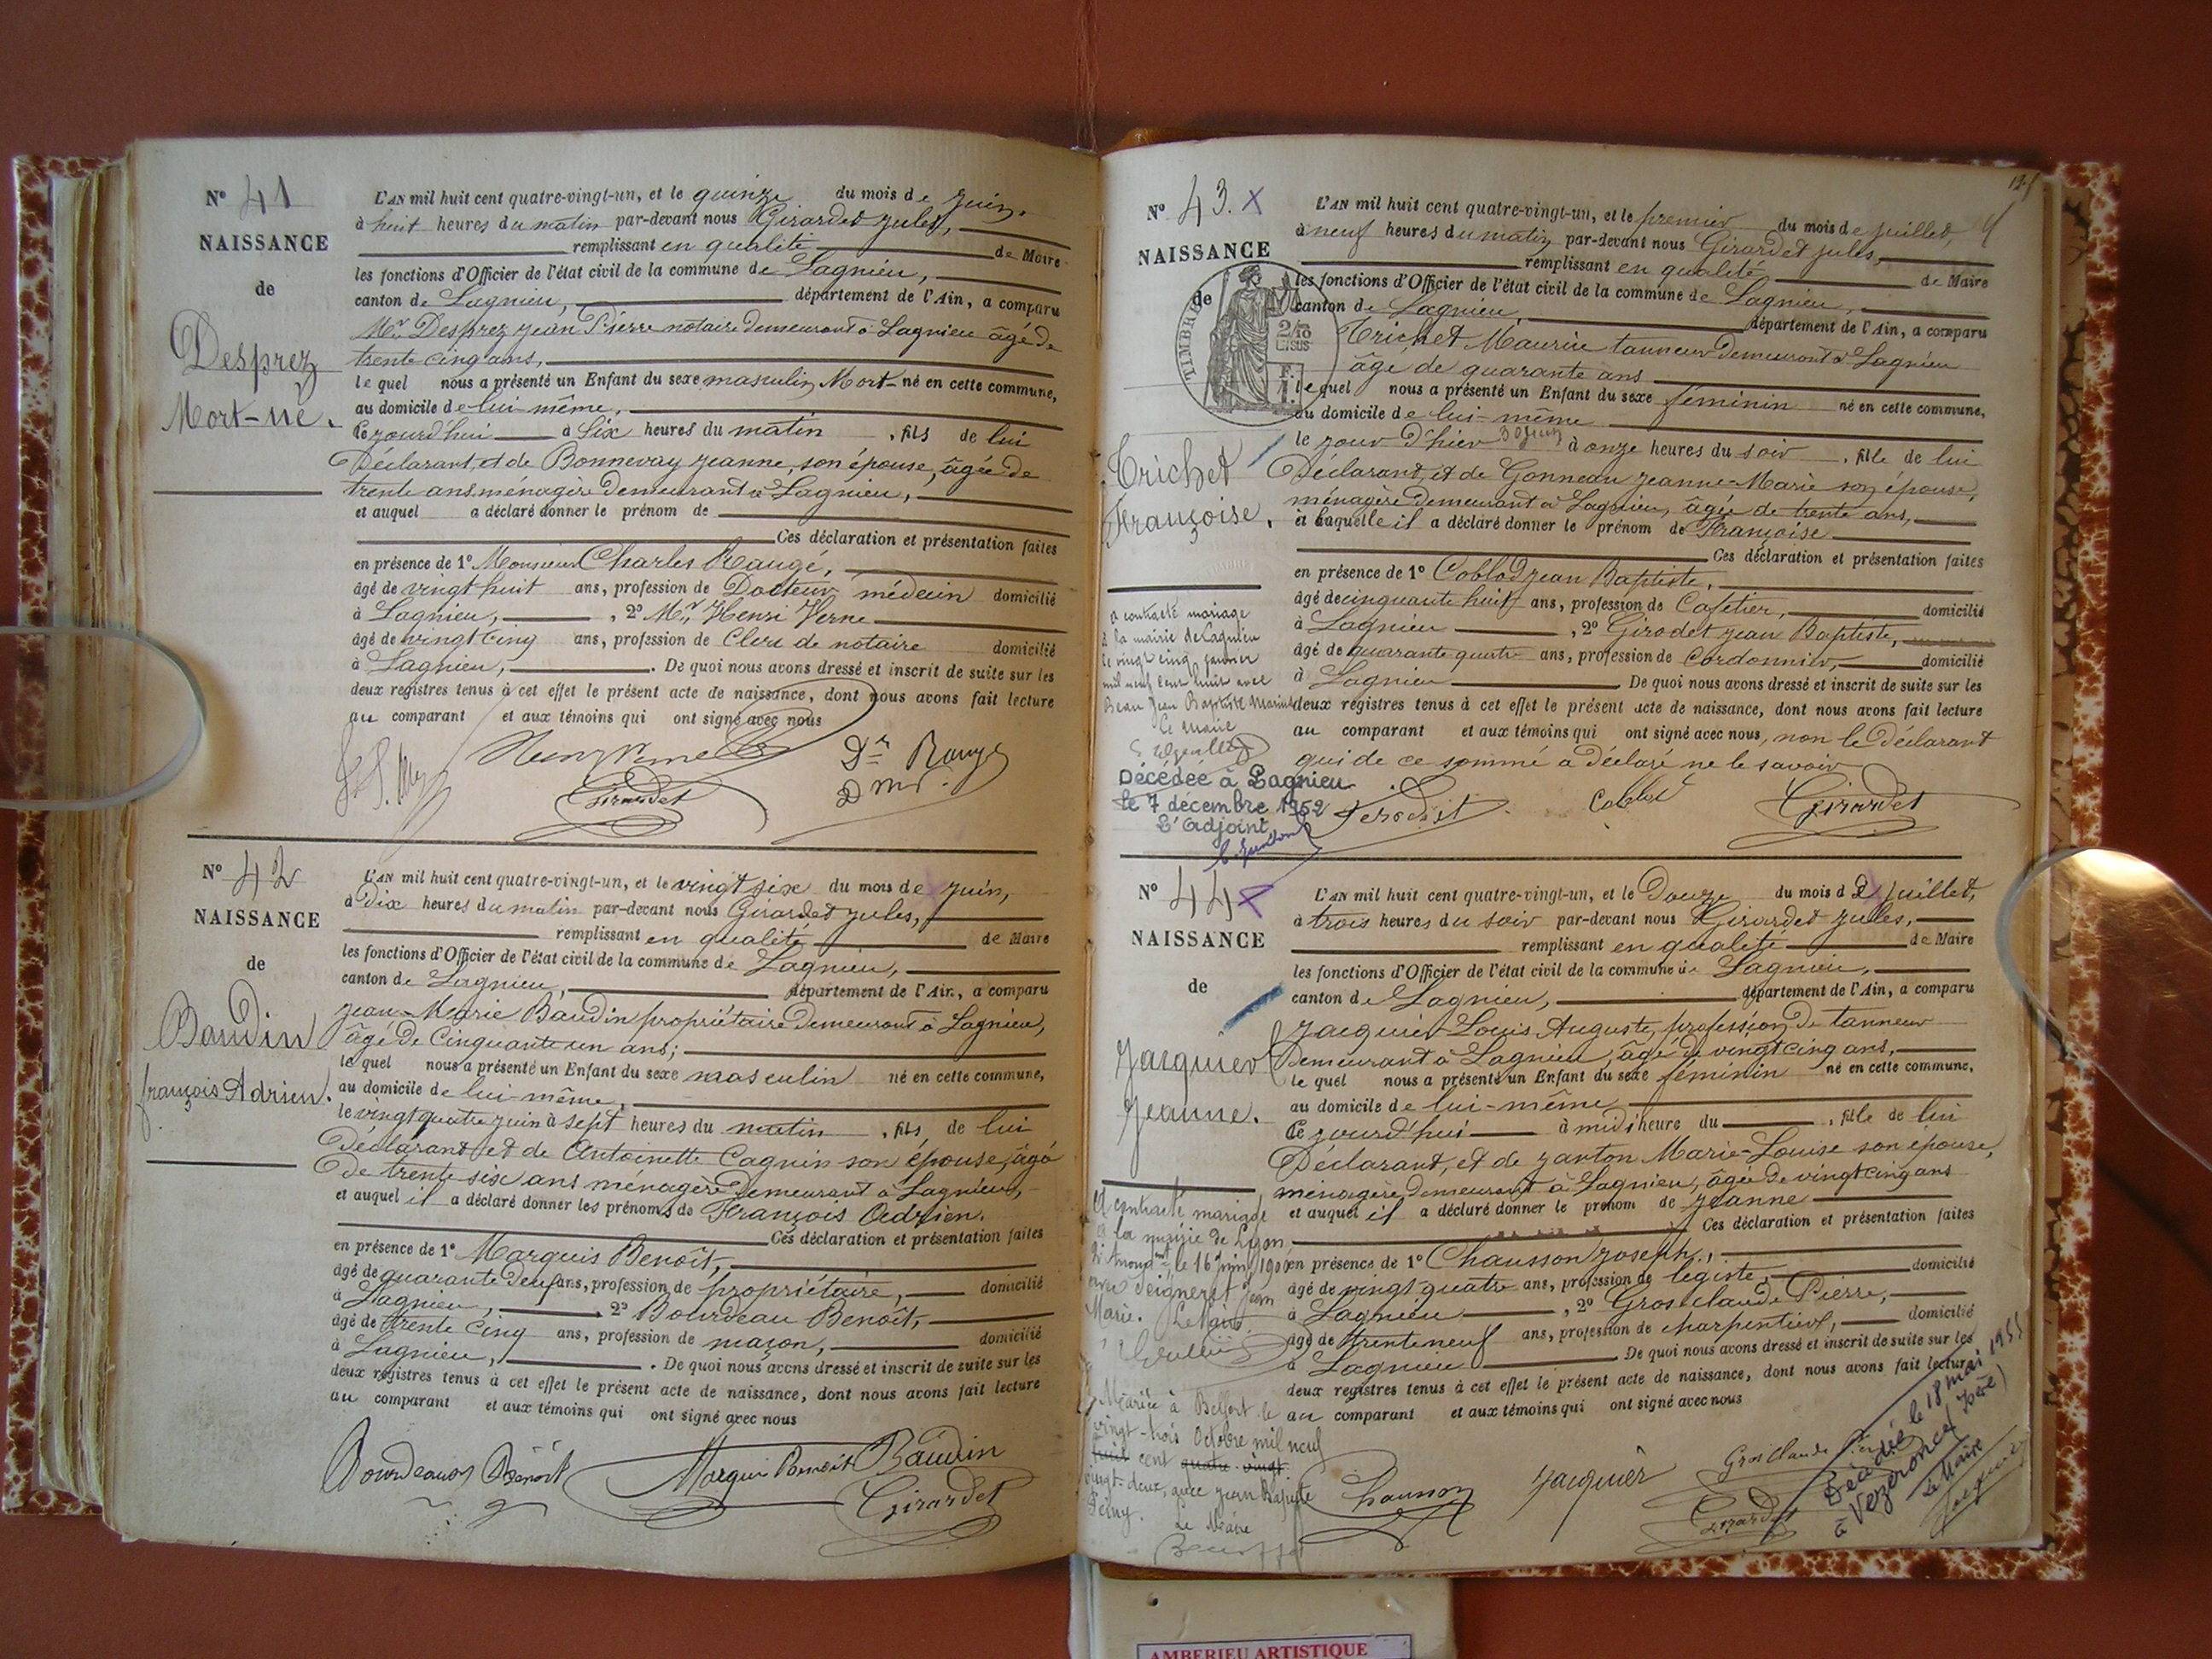 N° 41
NAISSANCE
de
Desprez
Mort-né.
L'AN mil huit cent quatre-vingt-un, et le quinze du mois de juin,
à huit heures du matin par-devant nous Girardet jules,
remplissant en qualité de Maire
les fonctions d'Officier de l'état civil de la commune de Lagnieu,
canton de Lagnieu, département de l'Ain, a comparu
Mr Desprez jean Pierre notaire demeurant à Lagnieu âgé de
trente cinq ans,
le quel nous a présenté un Enfant du sexe masculin Mort-né en cette commune,
au domicile de lui-même,
Ce jourd'hui à six heures du matin, fils de lui
Déclarant, et de Bonnevay jeanne, son épouse, âgée de
trente ans ménagère demeurant à Lagnieu,
et auquel a déclaré donner le prénom de
Ces déclaration et présentation faites
en présence de 1° Monsieur Charles Raugé,
âgé de vingt huit ans, profession de Docteur médecin domicilié
à Lagnieu, , 2° Mr Henri Verne
âgé de vingt cinq ans, profession de Clerc de notaire domicilié
à Lagnieu, . De quoi nous avons dressé et inscrit de suite sur les
deux registres tenus à cet effet le présent acte de naissance, dont nous avons fait lecture
au comparant et aux témoins qui ont signé avec nous
Henri Verne Dr Raugé
Girardet D m P.
N° 42
NAISSANCE
de
Baudin
françois Adrien.
L'AN mil huit cent quatre-vingt-un, et le vingt six du mois de juin,
à Dix heures du matin par-devant nous Girardet jules,
remplissant en qualité de Maire
les fonctions d'Officier de l'état civil de la commune de Lagnieu,
canton de Lagnieu, département de l'Ain, a comparu
jean-Marie Baudin propriétaire demeurant à Lagnieu,
âgé de Cinquante un ans;
le quel nous a présenté un Enfant du sexe masculin né en cette commune,
au domicile de lui-même,
le vingt quatre juin à sept heures du matin, fils de lui
Déclarant et de Antoinette Cagnin son épouse, âgé
de trente-six ans ménagère demeurant à Lagnieu,
et auquel il a déclaré donner les prénoms de François Adrien.
Ces déclaration et présentation faites
en présence de 1° Marquis Benoît,
âgé de quarante deux ans, profession de propriétaire, domicilié
à Lagnieu, 2° Bourdeau Benoît,
âgé de trente cinq ans, profession de maçon, domicilié
à Lagnieu, . De quoi nous avons dressé et inscrit de suite sur les
deux registres tenus à cet effet le présent acte de naissance, dont nous avons fait lecture
au comparant et aux témoins qui ont signé avec nous
Bourdeaux Benoît Marquis Benoît Baudin
Girardet
N° 43. X
NAISSANCE
de
TIMBRE DE
Trichet
Françoise.
L'AN mil huit cent quatre-vingt-un, et le premier du mois de juillet,
à neuf heures du matin par-devant nous Girardet jules,
remplissant en qualité de Maire
les fonctions d'Officier de l'état civil de la commune de Lagnieu,
canton de Lagnieu, département de l'Ain, a comparu
Trichet Maurice tanneur demeurant à Lagnieu
âgé de quarante ans
le quel nous a présenté un Enfant du sexe féminin né en cette commune,
au domicile de lui-même
le jour d'hier 30 juin à onze heures du soir, fille de lui
Déclarant, et de Gonneau jeanne-Marie son épouse,
ménagère demeurant à Lagnieu, âgée de trente ans,
et à laquelle il a déclaré donner le prénom de Françoise
Ces déclaration et présentation faites
en présence de 1° Coblod jean Baptiste,
âgé de cinquante huit ans, profession de Cafetier, domicilié
à Lagnieu , 2° Girodet jean Baptiste,
âgé de quarante quatre ans, profession de Cordonnier, domicilié
à Lagnieu . De quoi nous avons dressé et inscrit de suite sur les
deux registres tenus à cet effet le présent acte de naissance, dont nous avons fait lecture
au comparant et aux témoins qui ont signé avec nous, non le déclarant
qui de ce sommé a déclaré ne le savoir
Coblod Girardet
a contracté mariage
à la mairie de Lagnieu
le vingt cinq janvier
mil neuf cent huit avec
Beau Jean Baptiste Marius
Le maire
Décédée à Lagnieu
le 7 décembre 1952
L'Adjoint
N° 44 X
NAISSANCE
de
Jacquier
Jeanne.
L'AN mil huit cent quatre-vingt-un, et le Douze du mois de juillet,
à trois heures du soir par-devant nous Girardet jules,
remplissant en qualité de Maire
les fonctions d'Officier de l'état civil de la commune de Lagnieu,
canton de Lagnieu, département de l'Ain, a comparu
Jacquier Louis Auguste, profession de tanneur
demeurant à Lagnieu, âgé de vingt cinq ans,
le quel nous a présenté un Enfant du sexe féminin né en cette commune,
au domicile de lui-même
Ce jourd'hui à midi heure du , fille de lui
Déclarant, et de janton Marie-Louise son épouse,
ménagère demeurant à Lagnieu, âgée de vingt cinq ans
et auquel il a déclaré donner le prénom de jeanne
Ces déclaration et présentation faites
en présence de 1° Chausson joseph,
âgé de vingt quatre ans, profession de légiste, domicilié
à Lagnieu , 2° Grosclaude Pierre,
âgé de trente neuf ans, profession de charpentier, domicilié
à Lagnieu . De quoi nous avons dressé et inscrit de suite sur les
deux registres tenus à cet effet le présent acte de naissance, dont nous avons fait lecture
au comparant et aux témoins qui ont signé avec nous
Chausson Jacquier Grosclaude
Girardet
A contracté mariage
à la mairie de Lyon
le 16 juin 190
avec Seigneret Jean
Marie. Le Maire
Mariée à Belfort le
vingt-trois Octobre mil neuf
huit cent quatre-vingt
vingt-deux, avec Jean Baptiste
Le Maire
Décédée le 18 mai 1955
à Vezeronce (Isère)
Le Maire
AMBERIEU ARTISTIQUE